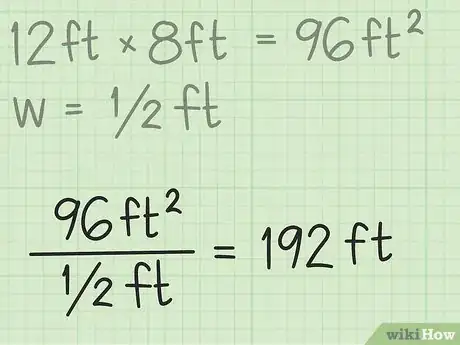 12ft × 8ft = 96ft²
w = 1/2 ft
96ft²
1/2 ft
= 192 ft
wikiHow